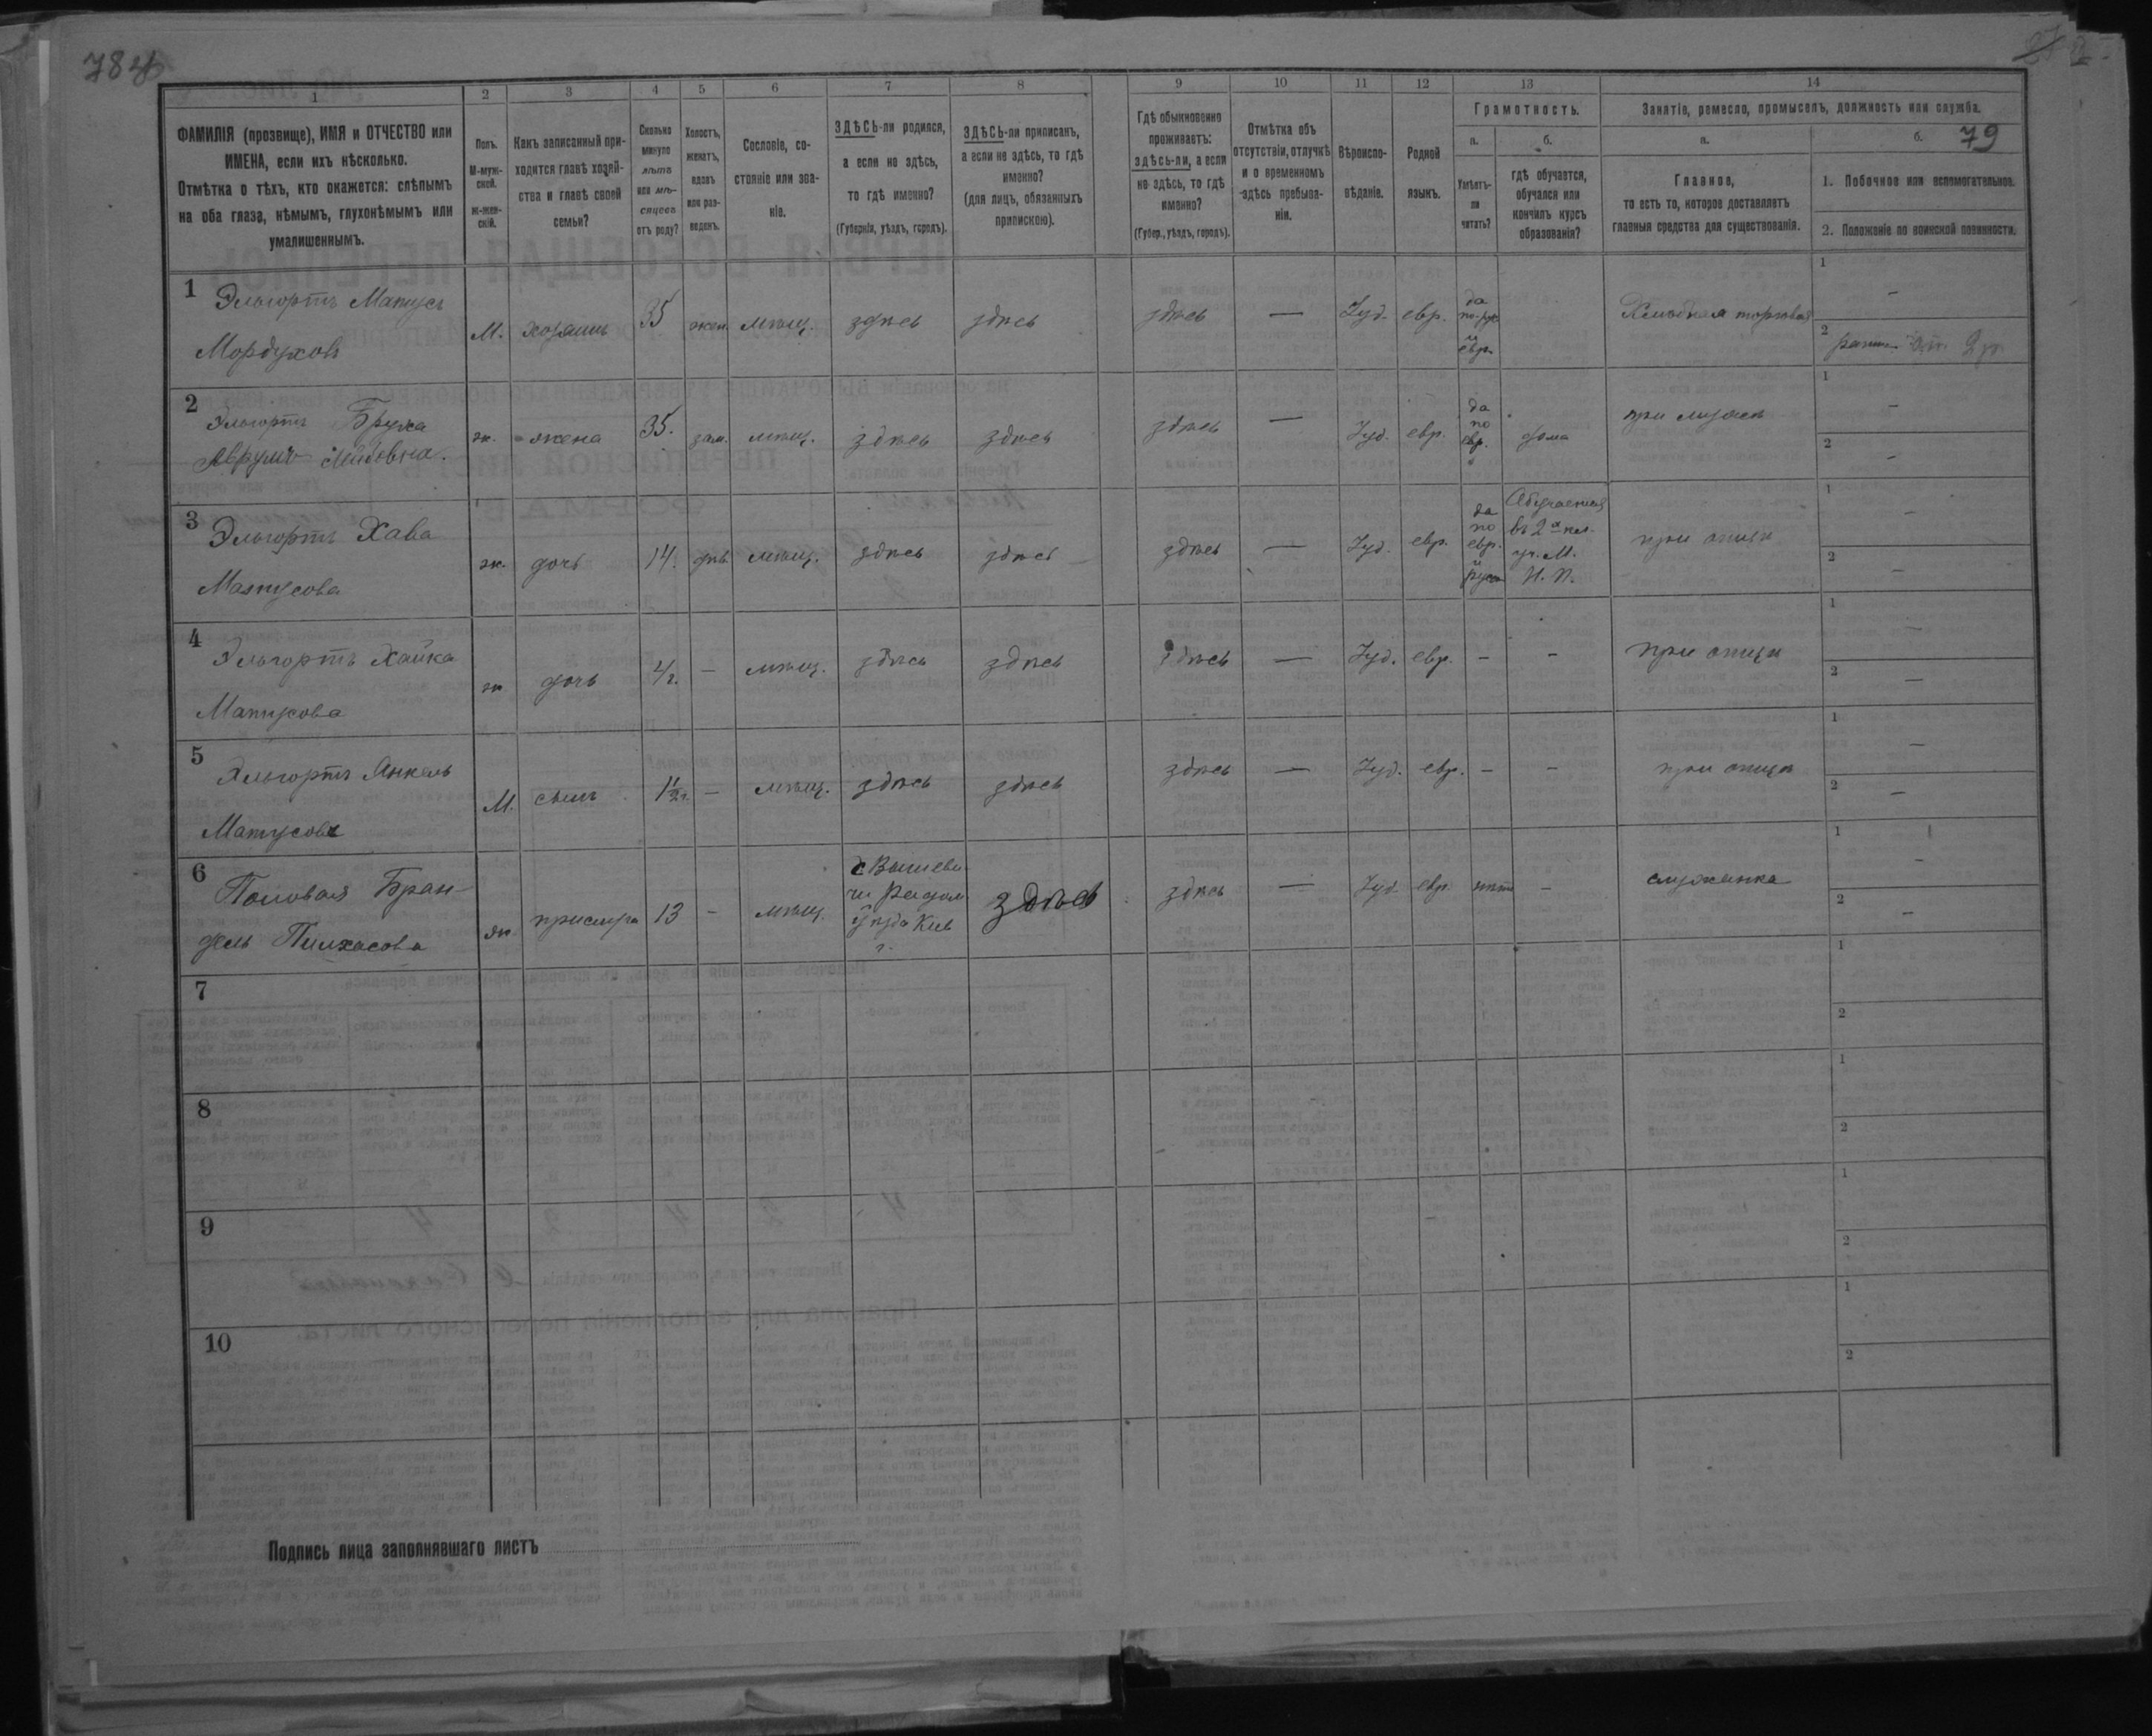 78
79
1 2 3 4 5 6 7 8 9 10 11 12 13 14
ФАМИЛІЯ (прозвище), ИМЯ и ОТЧЕСТВО или
ИМЕНА, если ихъ нѣсколько.
Отмѣтка о тѣхъ, кто окажется: слѣпымъ
на оба глаза, нѣмымъ, глухонѣмымъ или
умалишеннымъ.
Полъ.
М-муж-
ской.
Ж-жен-
скій.
Какъ записанный при-
ходится главѣ хозяй-
ства и главѣ своей
семьи?
Сколько
минуло
лѣтъ
или мѣ-
сяцевъ
отъ роду?
Холостъ,
женатъ,
вдовъ
или раз-
веденъ.
Сословіе, со-
стояніе или зва-
ніе.
ЗДѢСЬ-ли родился,
а если не здѣсь,
то гдѣ именно?
(Губернія, уѣздъ, городъ).
ЗДѢСЬ-ли приписанъ,
а если не здѣсь, то гдѣ
именно?
(для лицъ, обязанныхъ
припискою).
Гдѣ обыкновенно
проживаетъ:
здѣсь-ли, а если
не здѣсь, то гдѣ
именно?
(Губер., уѣздъ, городъ).
Отмѣтка объ
отсутствіи, отлучкѣ
и о временномъ
здѣсь пребыва-
ніи.
Вѣроиспо-
вѣданіе.
Родной
языкъ.
Грамотность.
а.
Умѣетъ-
ли
читать?
б.
гдѣ обучается,
обучался или
кончилъ курсъ
образованія?
Занятіе, ремесло, промыселъ, должность или служба.
а.
Главное,
то есть то, которое доставляетъ
главныя средства для существованія.
б.
1. Побочное или вспомогательное.
2. Положеніе по воинской повинности.
1 Эльгортъ Матусъ
Мордуховъ
М. хозяинъ 35 жен. мѣщ. здѣсь здѣсь здѣсь — Іуд. евр.
да
по-рус
и
евр.
торговля
1 —
2
2 Эльгортъ Бруха
Аврумъ
ж. жена 35. зам. мѣщ. здѣсь здѣсь здѣсь — Іуд. евр.
да
по
евр.
дома
при мужѣ
1 —
2 —
3 Эльгортъ Хава
Матусова
ж. дочь 14. дѣв. мѣщ. здѣсь здѣсь здѣсь — Іуд. евр.
да
по
евр.
и
русс
Обучается
въ 2х кл.
уч. М.
Н. П.
при отцѣ
1 —
2 —
4 Эльгортъ Хайка
Матусова
ж дочь 4г. — мѣщ. здѣсь здѣсь здѣсь — Іуд. евр. — — при отцѣ
1 —
2 —
5 Эльгортъ Янкель
Матусовъ
М. сынъ 1½г. — мѣщ. здѣсь здѣсь здѣсь — Іуд. евр. — — при отцѣ
1 —
2 —
6 Половая Бран-
дель Пинхасова
ж прислуга 13 — мѣщ.
с Вышеви-
чи Радом.
уѣзда Кіев
г.
здѣсь здѣсь — Іуд. евр. нѣтъ — служанка
1 —
2 —
7
1
2
8
1
2
9
1
2
10
1
2
Подпись лица заполнявшаго листъ